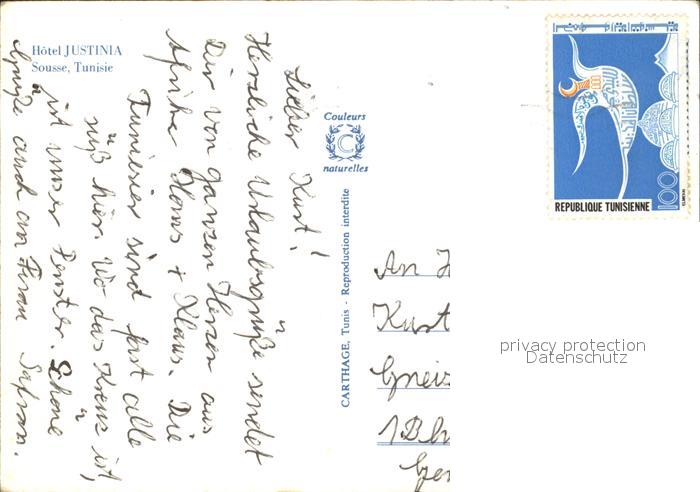 Hôtel JUSTINIA
Sousse, Tunisie
Lieber Kurt!
Herzliche Urlaubsgrüße sendet
Dir von ganzen Herzen aus
Afrika Hans + Klaus. Die
Tunesier sind fast alle
süß hier. Wo das Kreuz ist,
ist unser Fenster. Schöne
Grüße auch an Frau
Couleurs
C
naturelles
CARTHAGE, Tunis - Reproduction interdite
REPUBLIQUE TUNISIENNE
100
An H
Kurt
Gneis
1 B
privacy protection
Datenschutz